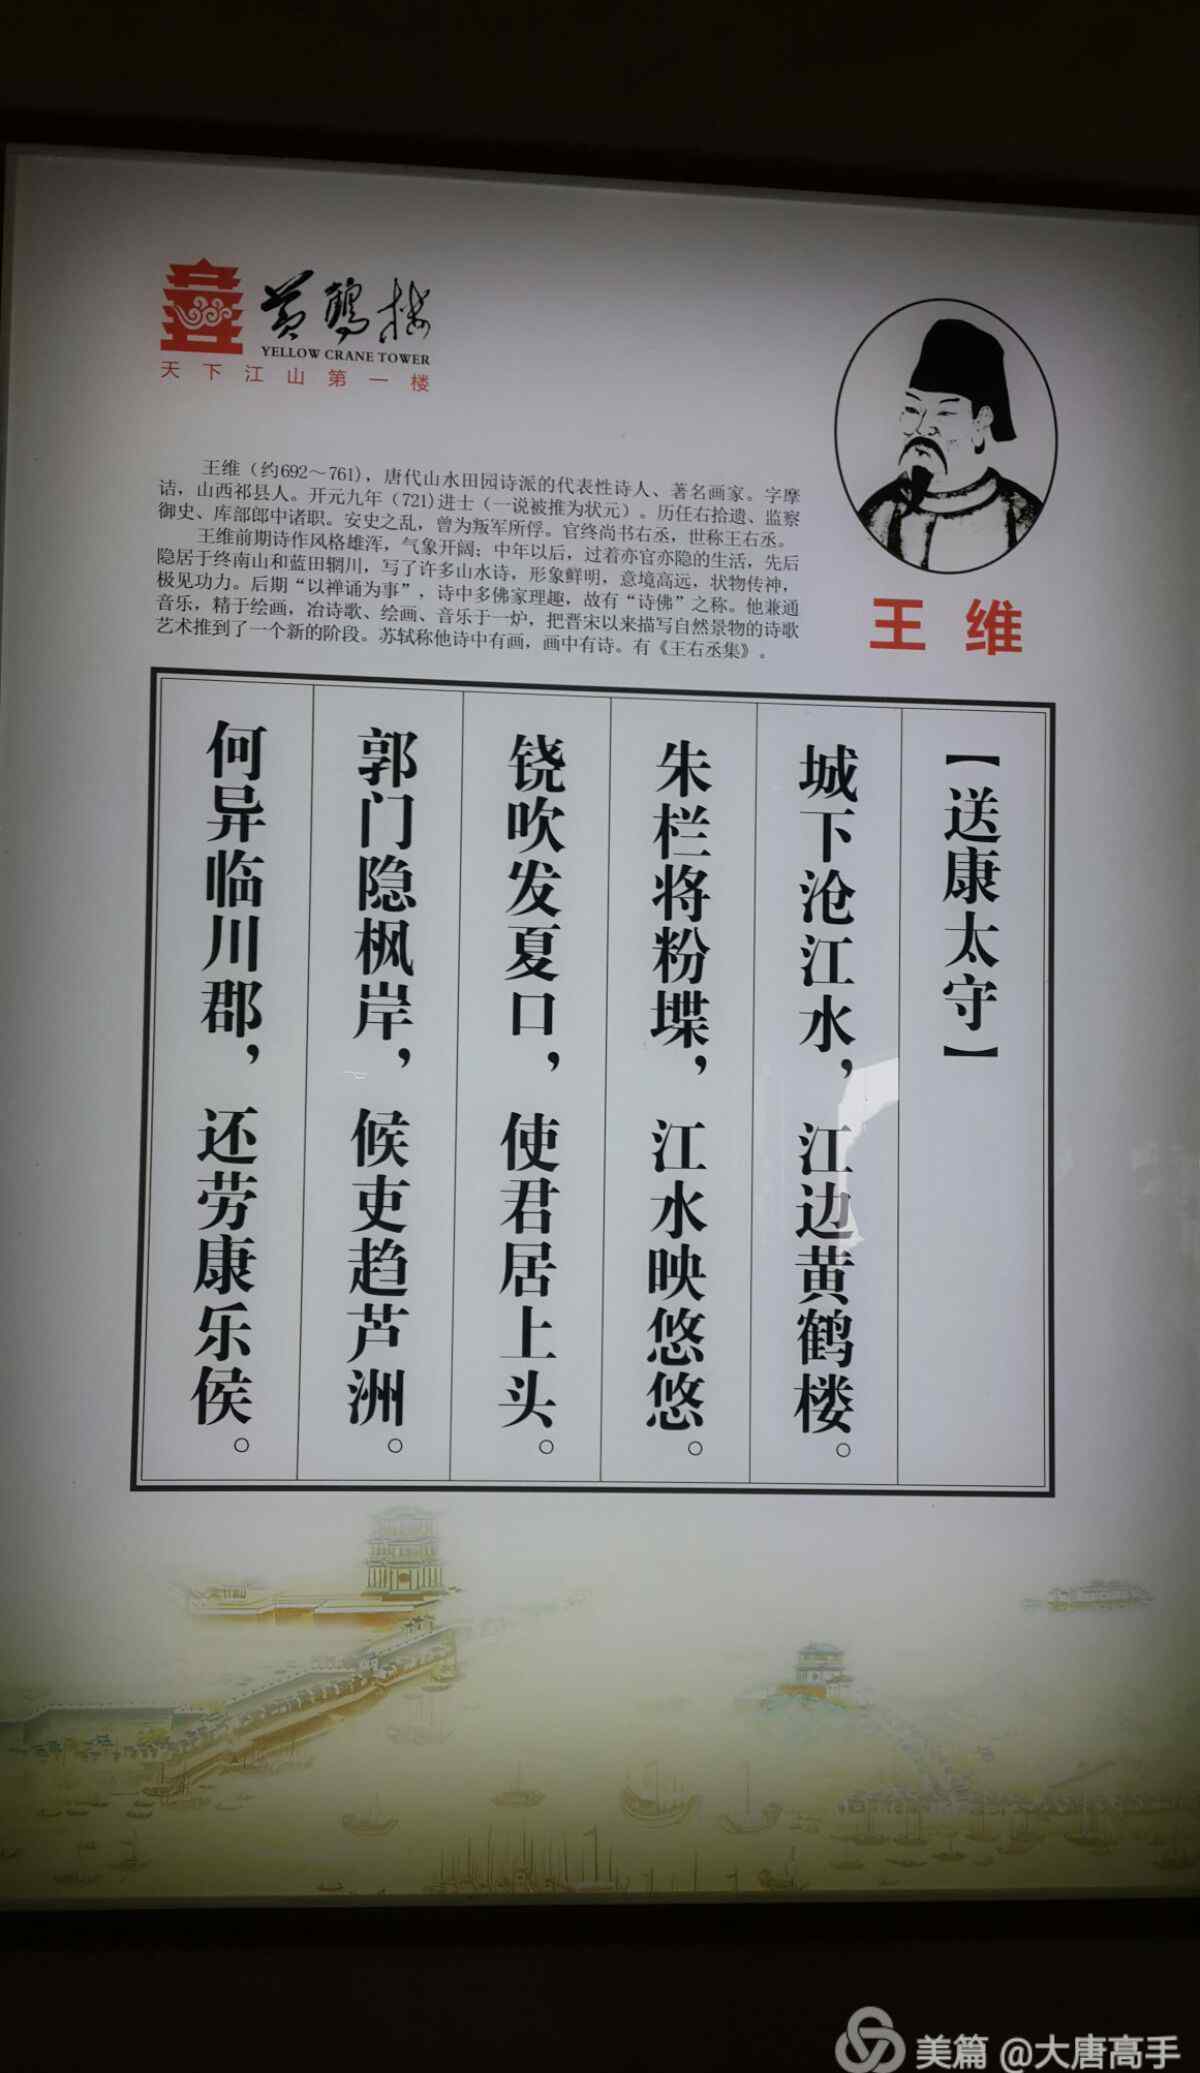 黄鹤楼
YELLOW CRANE TOWER
天下江山第一楼
王维（约692～761），唐代山水田园诗派的代表性诗人、著名画家。字摩
诘，山西祁县人。开元九年（721)进士（一说被推为状元）。历任右拾遗、监察
御史、库部郎中诸职。安史之乱，曾为叛军所俘。官终尚书右丞，世称王右丞。
王维前期诗作风格雄浑，气象开阔；中年以后，过着亦官亦隐的生活，先后
隐居于终南山和蓝田辋川，写了许多山水诗，形象鲜明，意境高远，状物传神，
极见功力。后期“以禅诵为事”，诗中多佛家理趣，故有“诗佛”之称。他兼通
音乐，精于绘画，冶诗歌、绘画、音乐于一炉，把晋宋以来描写自然景物的诗歌
艺术推到了一个新的阶段。苏轼称他诗中有画，画中有诗。有《王右丞集》。
王维
【送康太守】
城下沧江水，江边黄鹤楼。
朱栏将粉堞，江水映悠悠。
铙吹发夏口，使君居上头。
郭门隐枫岸，候吏趋芦洲。
何异临川郡，还劳康乐侯。
美篇 @大唐高手